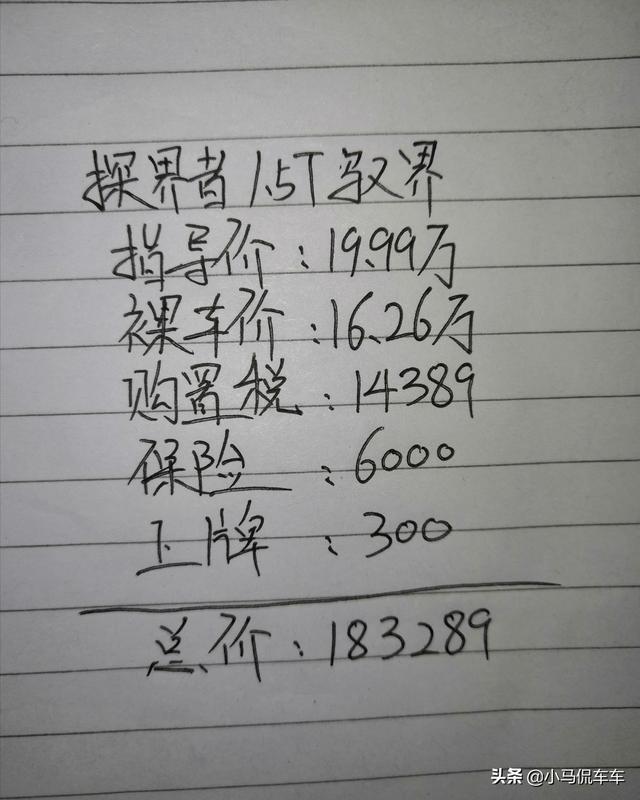 探界者 1.5T驭界
指导价：19.99万
裸车价：16.26万
购置税：14389
保险：6000
上牌：300
总价：183289
头条 @小马侃车车